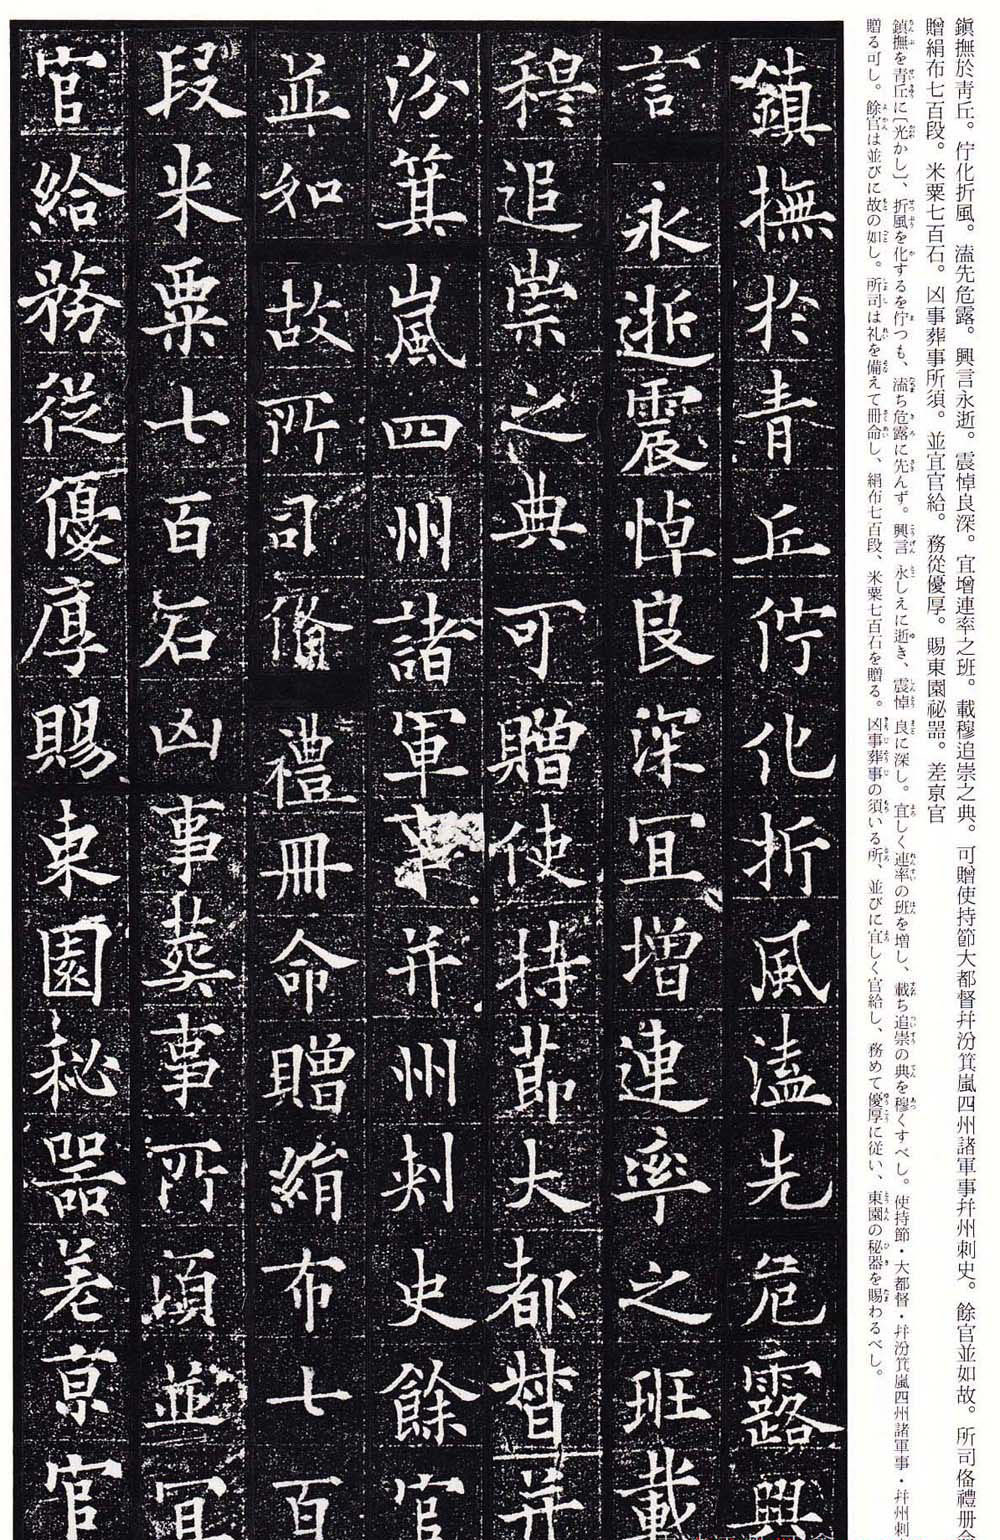 鎭撫於靑丘。佇化折風。溘先危露。興言永逝。震悼良深。宜增連率之班。載穆追崇之典。可贈使持節大都督幷汾箕嵐四州諸軍事幷州刺史。餘官並如故。所司俻禮册命
贈絹布七百段。米粟七百石。凶事葬事所須。並宜官給。務從優厚。賜東園祕噐。差京官
鎮撫を青丘に〔光かし〕、折風を化するを佇つも、溘ち危露に先んず。興言 永しえに逝き、震悼 良に深し。宜しく連率の班を増し、載ち追崇の典を穆くすべし。使持節・大都督・幷汾箕嵐四州諸軍事・幷州刺
贈る可し。餘官は並びに故の如し。所司は礼を備えて冊命し、絹布七百段、米粟七百石を贈る。凶事葬事の須いる所、並びに宜しく官給し、務めて優厚に従い、東園の秘器を賜わるべし。
鎮撫於青丘佇化折風溘先危露興
言永逝震悼良深宜增連率之班載
穆追崇之典可贈使持節大都督并
汾箕嵐四州諸軍事并州刾史餘官
並如故所司俻禮冊命贈絹布七百
段米粟七百石凶事葬事所須並宜
官給務從優厚賜東園秘噐差京官